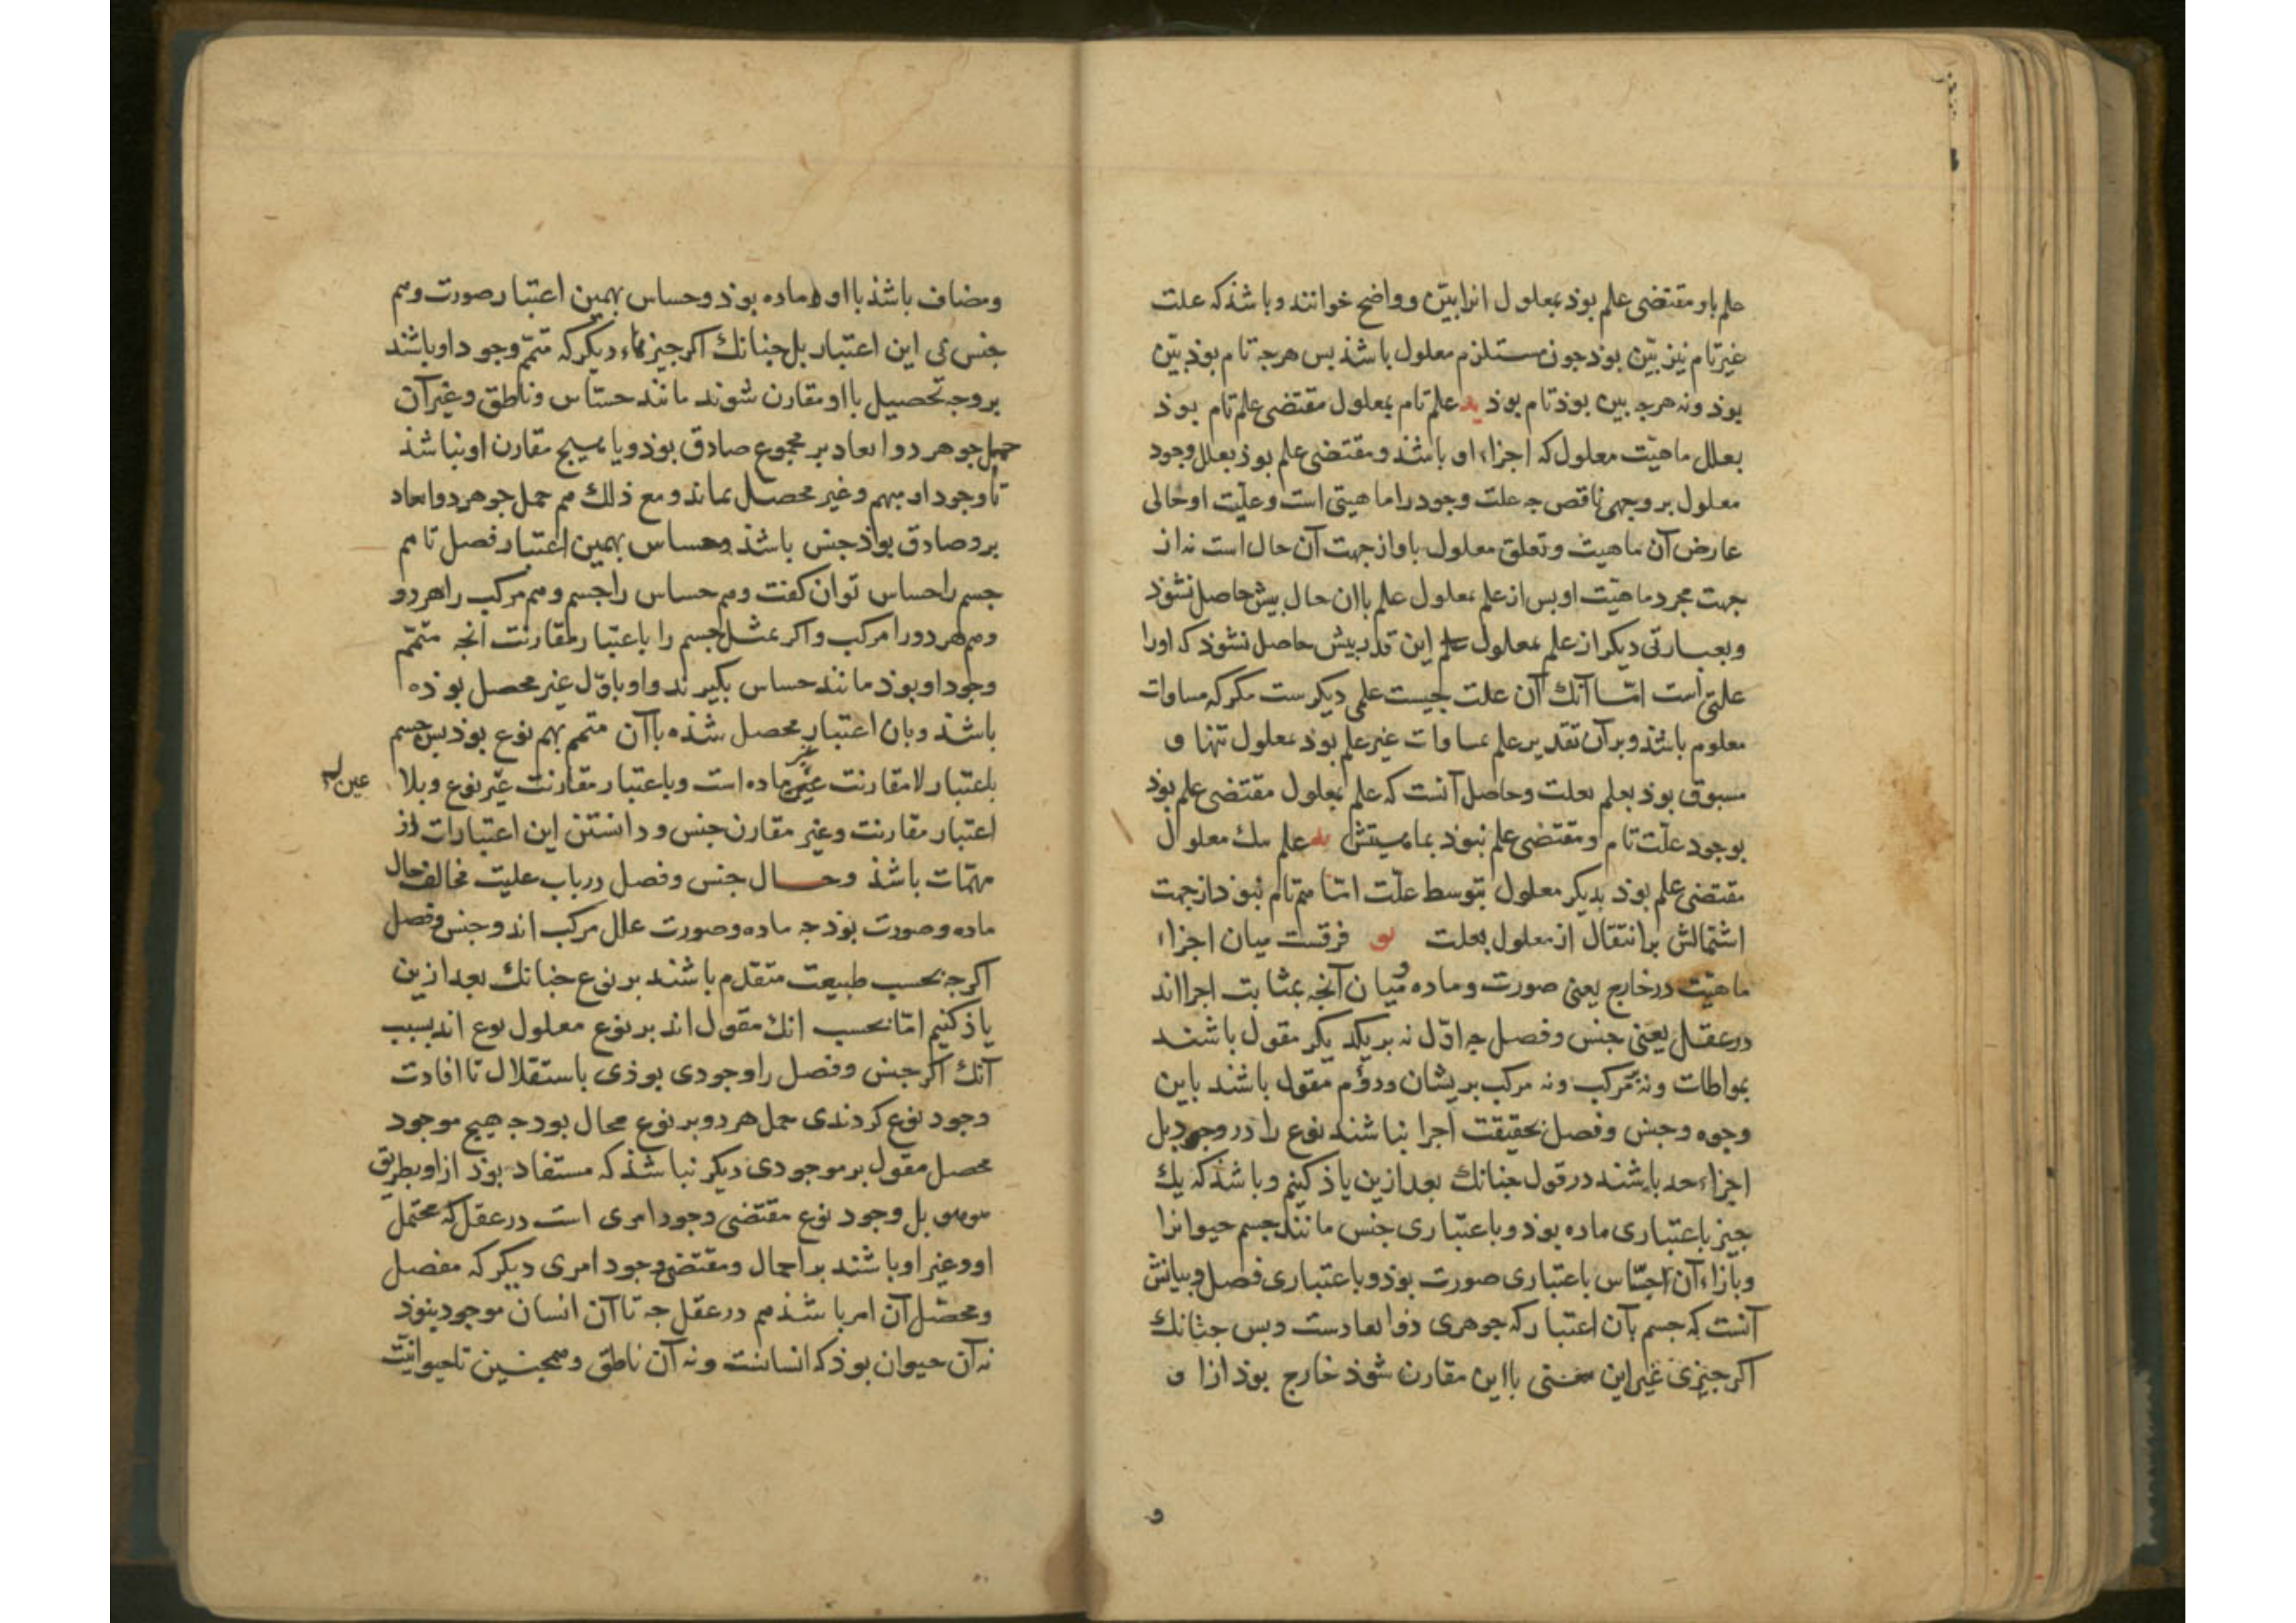 علم باو مقتضی علم بوذ بمعلول انرا بیّن و واضح خوانند و باشذ که علت
غیر تام نیز بیّن بوذ جون مستلزم معلول باشذ بس هرجه تام بوذ بیّن
بوذ و نه هرجه بین بوذ تام بوذ ید علم تام بمعلول مقتضی علم تام بوذ
بعلل ماهیّت معلول که اجزاء او باشذ و مقتضی علم بوذ بعلل وجود
معلول بر وجهی ناقص جه علت وجود را ماهیتی است و علّیت او حالی
عارض آن ماهیت و تعلق معلول باو از جهت آن حال است نه از
جهت مجرد ماهیّت او بس از علم بمعلول علم باان حال بیش حاصل نشوذ
و بعبارتی دیکر از علم بمعلول علم این قدر بیش حاصل نشوذ که اورا
علتی است امّا آنک آن علت جیست علمی دیکرست مکر که مساوات
معلوم باشذ و بر آن تقدیر علم بمساوات غیر علم بوذ بمعلول تنها و
مسبوق بوذ بعلم بعلت و حاصل آنست که علم بمعلول مقتضی علم بوذ
بوجود علّت تام و مقتضی علم نبوذ بماهیتش یه علم بیک معلول
مقتضی علم بوذ بدیکر معلول بتوسط علّت امّا هم تام نبوذ از جهت
اشتمالش بر انتقال از معلول بعلت یو فرقست میان اجزاء
ماهیّت در خارج یعنی صورت و ماده و میان آنجه بمثابت اجزااند
در عقل یعنی جنس و فصل جه اوّل نه بر یکدیکر مقول باشند
بمواطات و نه بر مرکب و نه مرکب بریشان و دوّم مقول باشند باین
وجوه و جنس و فصل بحقیقت اجزا نباشند نوع را در وجود بل
اجزاء حد باشند در قول جنانک بعد ازین یاذ کنیم و باشذ که یک
جیز باعتباری ماده بوذ و باعتباری جنس مانند جسم حیوانرا
و بازاء آن احسّاس باعتباری صورت بوذ و باعتباری فصل و بیانش
آنست که جسم بآن اعتبار که جوهری ذو ابعادست و بس جنانک
اکر جیزی غیر این معنی باین مقارن شوذ خارج بوذ ازا و
و
و مضاف باشذ بااو ماده بوذ و حساس بهمین اعتبار صورت و هم
جنس نی این اعتبار بل جنانک اکر جیزهاء دیکر که متمّم وجود او باشند
بر وجه تحصیل بااو مقارن شوند مانند حسّاس و ناطق و غیر آن
حمل جوهر ذو ابعاد بر مجموع صادق بوذ و یا هیج مقارن او نباشذ
تا وجود او مبهم و غیر محصل بماند و مع ذلک هم حمل جوهر ذو ابعاد
برو صادق بوذ جنس باشذ و حساس بهمین اعتبار فصل تا هم
جسم را حساس توان کفت و هم حساس را جسم و هم مرکب را هر دو
و هم هر دو را مرکب و اکر بمثل جسم را باعتبار مقارنت آنجه متمّم
وجود او بوذ مانند حساس بکیرند و او باوّل غیر محصل بوذه
باشذ و بان اعتبار محصل شذه باآن متمم بهم نوع بوذ بس جسم
باعتبار لا مقارنت غیر ماده است و باعتبار مقارنت غیر نوع و بلا
عین
اعتبار مقارنت و غیر مقارن جنس و دانستن این اعتبارات از
مهمّات باشذ و حال جنس و فصل در باب علیت مخالف حال
ماده و صورت بوذ جه ماده و صورت علل مرکب اند و جنس و فصل
اکرجه بحسب طبیعت متقدم باشند بر نوع جنانک بعد ازین
یاذ کنیم امّا بحسب انک مقول اند بر نوع معلول نوع اند بسبب
آنک اکر جنس و فصل را وجودی بوذی باستقلال تا افادت
وجود نوع کردندی حمل هر دو بر نوع محال بوذ جه هیج موجود
محصل مقول بر موجودی دیکر نباشذ که مستفاد بوذ ازاو بطریق
هوهو بل وجود نوع مقتضی وجود امری است در عقل که محتمل
او و غیر او باشند بر اجمال و مقتضی وجود امری دیکر که مفصل
و محصّل آن امر باشذ هم در عقل جه تا آن انسان موجود نبوذ
نه آن حیوان بوذ که انسانست و نه آن ناطق و همجنین تا حیوانیّت